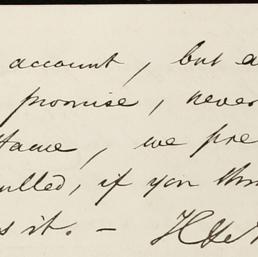 account, but a
promise, never
, we pre
ulled, if you thin
s it. –